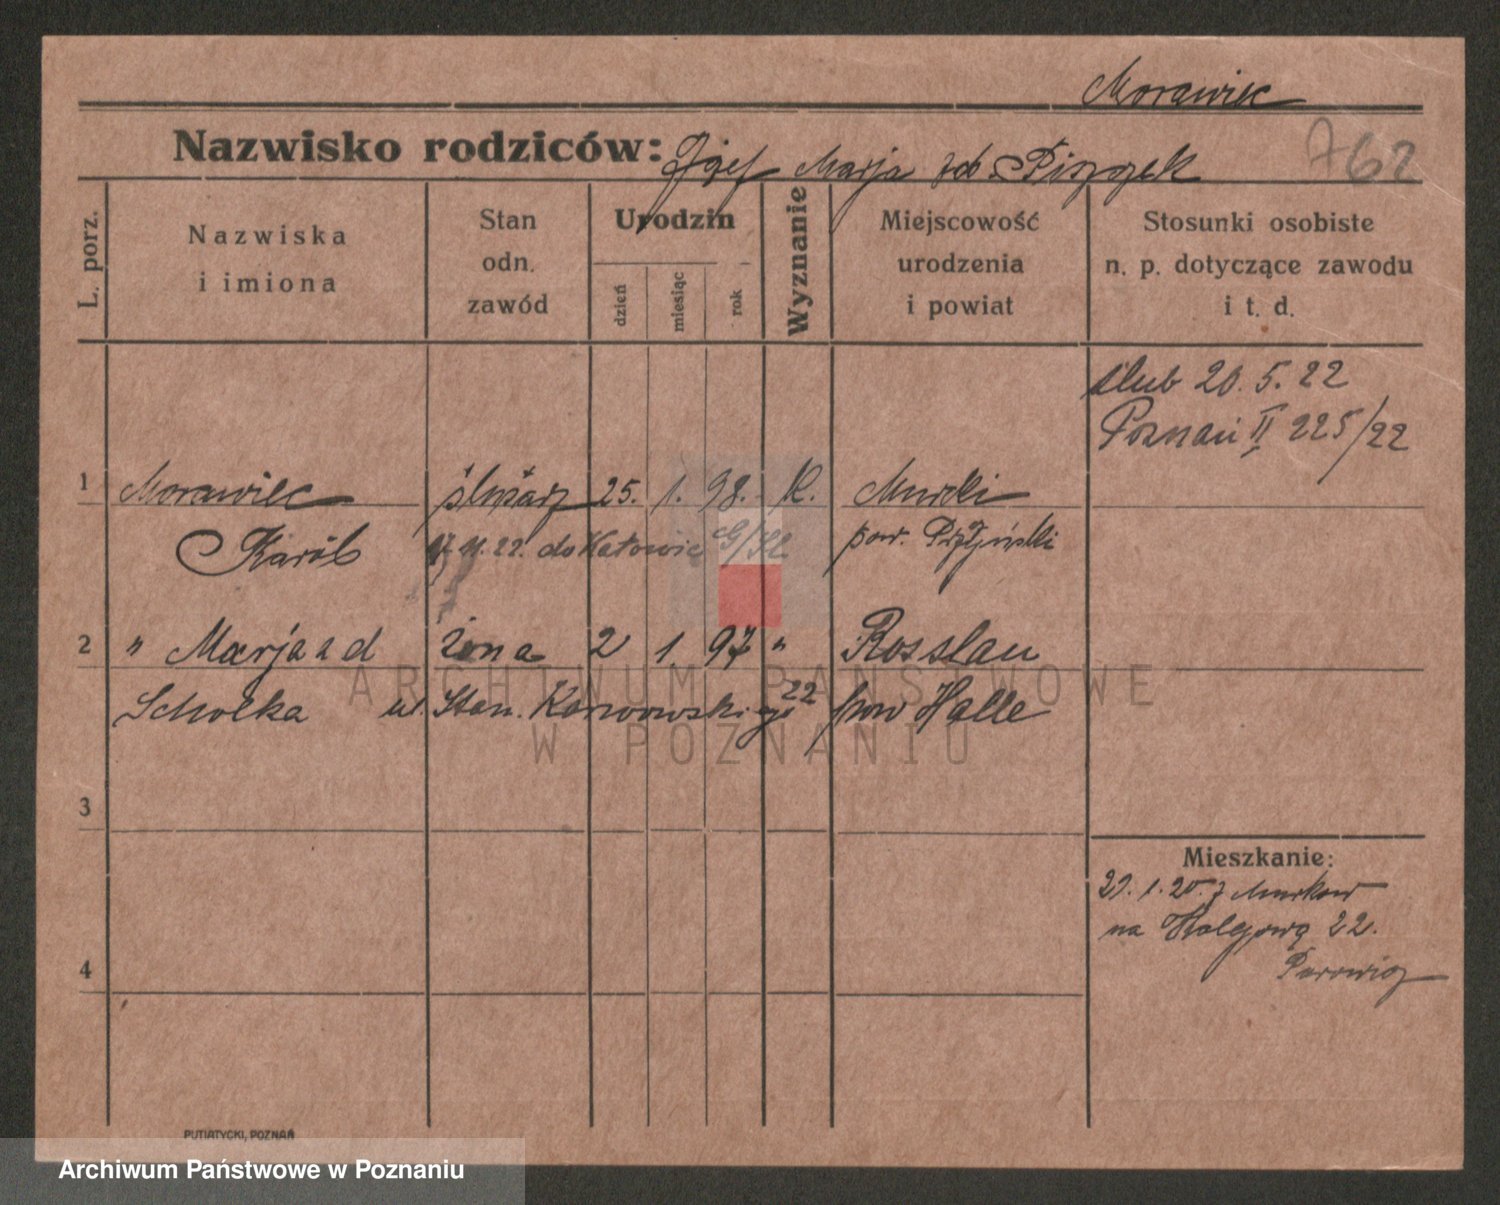 Morawiec
Nazwisko rodziców: Józef Marja zd. Piszczek
762
L. porz.
Nazwiska
i imiona
Stan
odn.
zawód
Urodzin
dzień
miesiąc
rok
Wyznanie
Miejscowość
urodzenia
i powiat
Stosunki osobiste
n. p. dotyczące zawodu
i t. d.
ślub 20. 5. 22
Poznań II 225/22
1 Morawiec ślusarz 25. 1. 98. K. Murcki
Karól 11. 22. do Katowic G/Śl pow. Pszczyński
2 " Marja z d żona 2 1. 97 " Rosslau
Scholka ul. Stan. Karwowskiego 22 pow Halle
3
Mieszkanie:
29. 1. 20. z Murkow
na 22.
4
PUTIATYCKI, POZNAŃ
ARCHIWUM PAŃSTWOWE
W POZNANIU
Archiwum Państwowe w Poznaniu